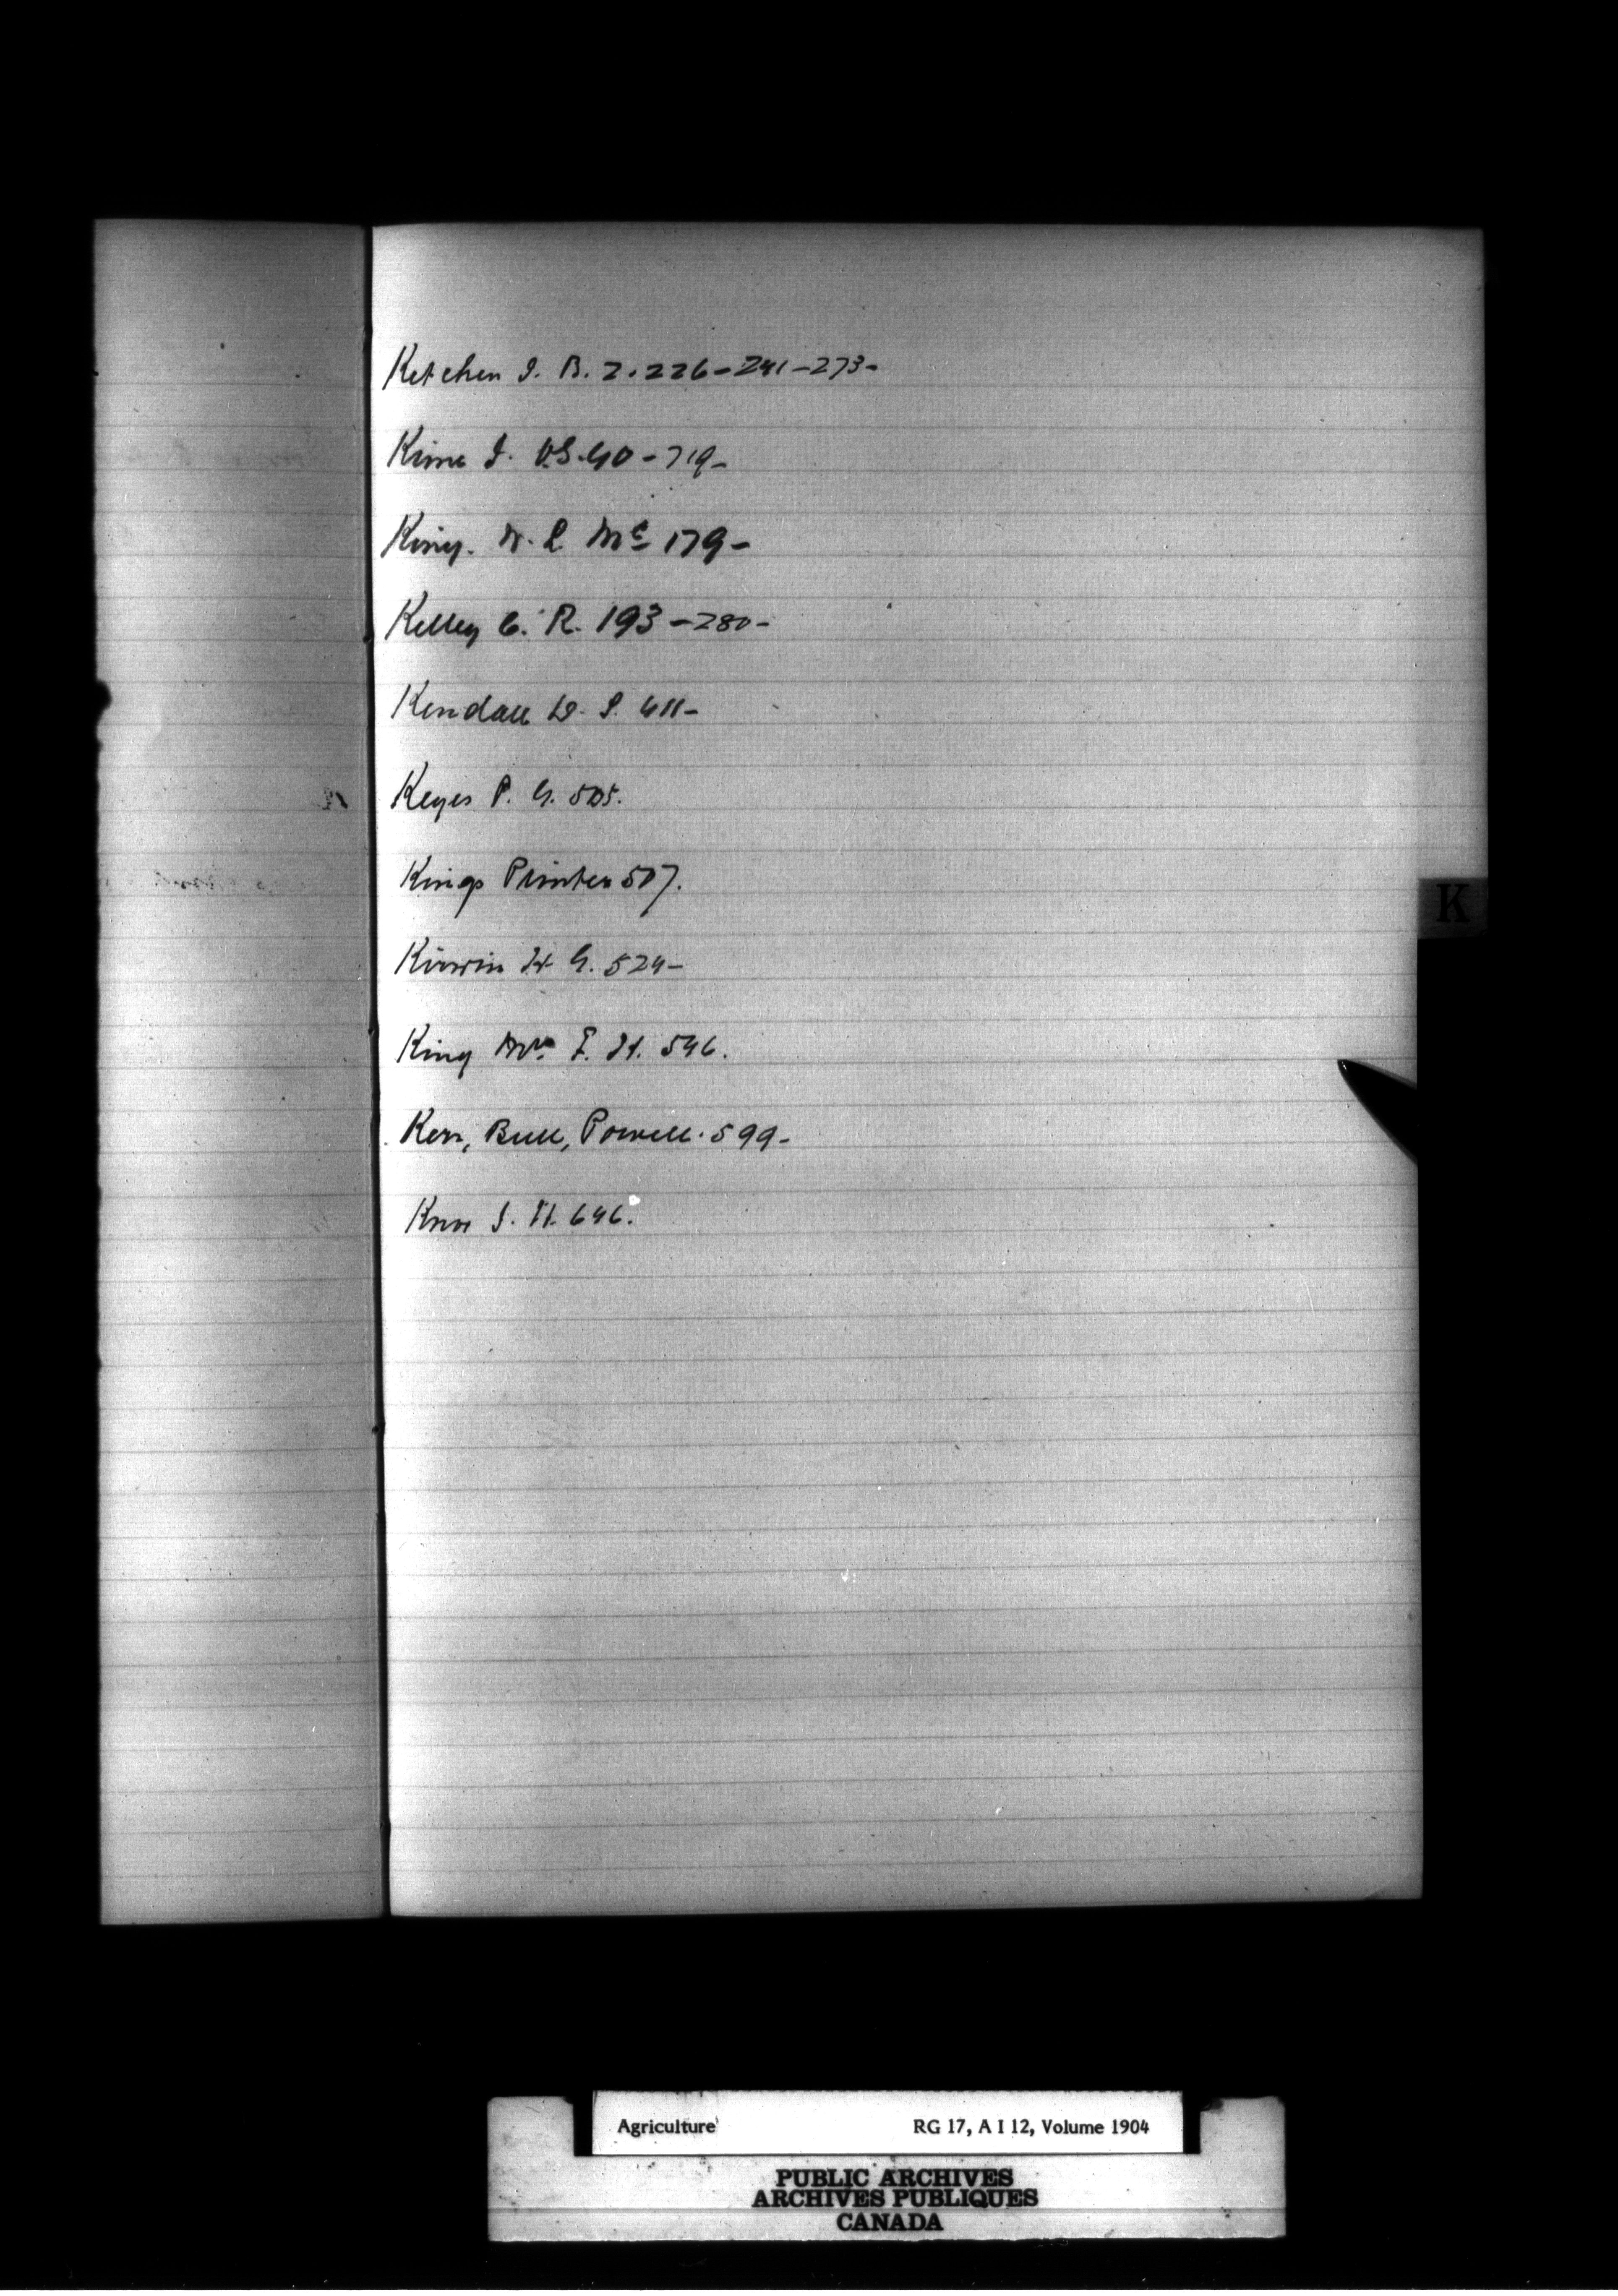 Ketchen I. B. 2. 226-241-273-
Kime J. V.S. 40-719-
King. W. L. Mc 179-
Kelley C. R. 193-280-
Kendall D. S. 411-
Keyes P. G. 505.
K
Kings Printer 507.
Kirwin H G. 524-
King Mrs F. H. 546.
Kerr, Bull, Powell. 599-
Knox J. H. 646.
Agriculture RG 17, A I 12, Volume 1904
PUBLIC ARCHIVES
ARCHIVES PUBLIQUES
CANADA